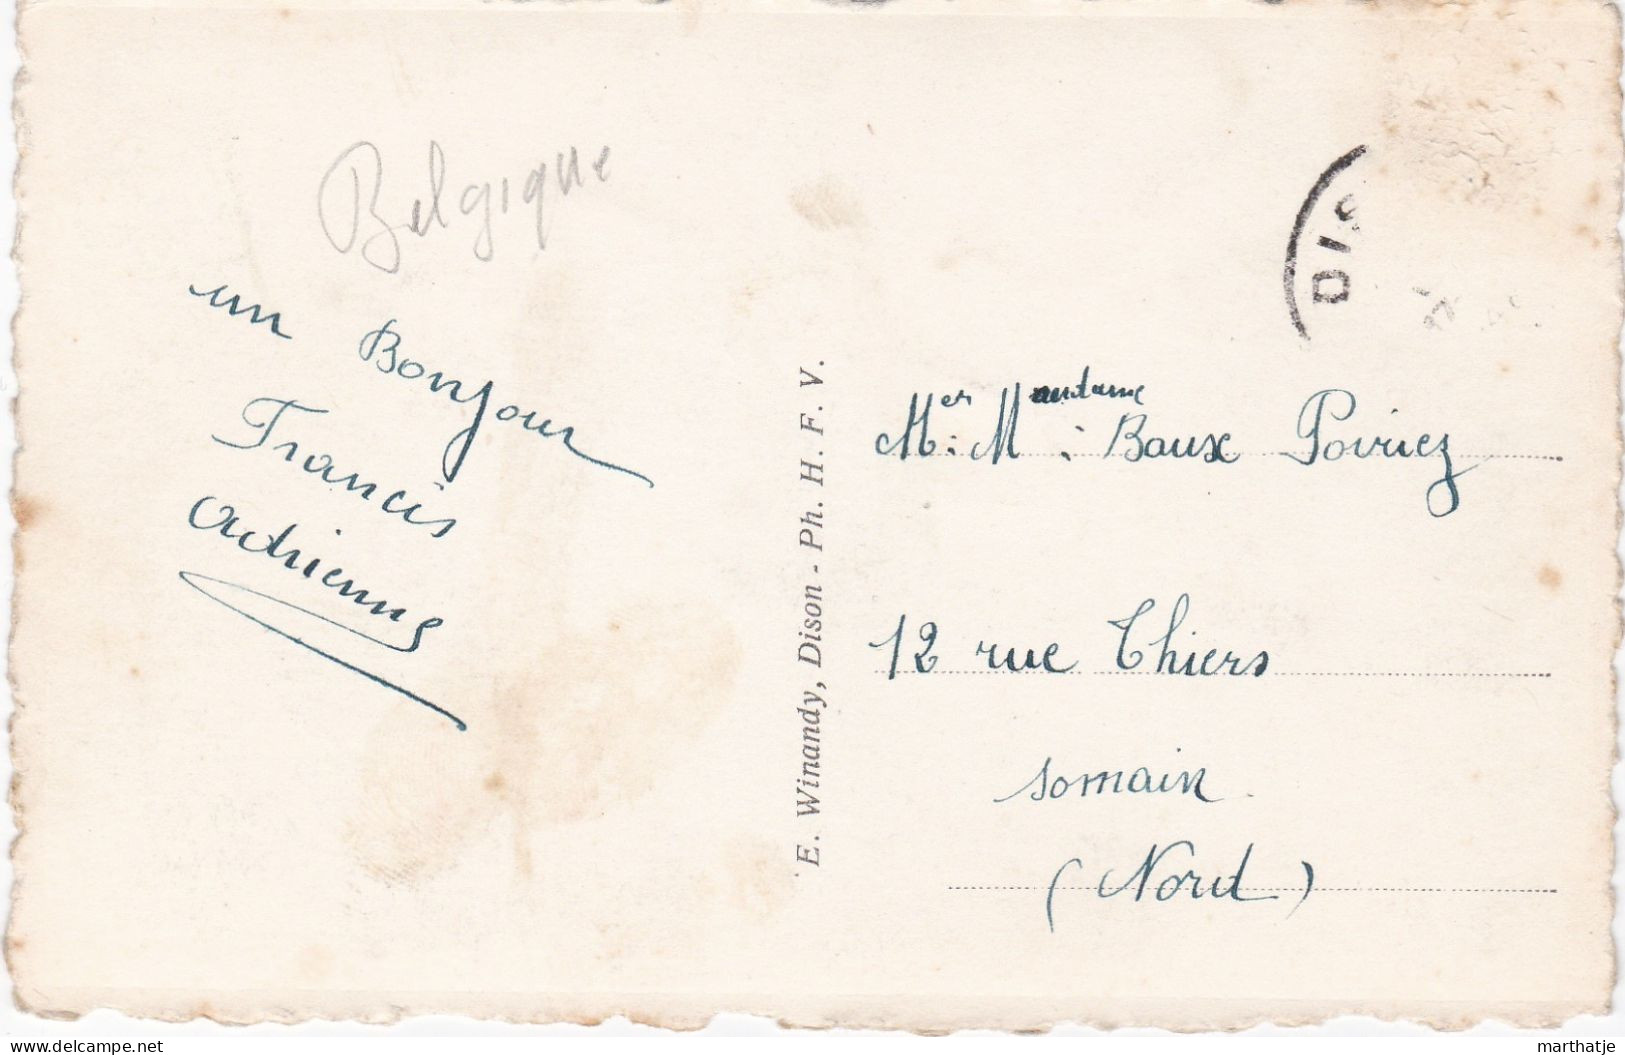 Belgique
un Bonjour
Francis
Adrienne
E. Winandy, Dison - Ph. H. F. V.
DIS
Mer. Mandame : Baux Poivriez
12 rue Thiers
somain
(Nord)
delcampe.net
marthatje